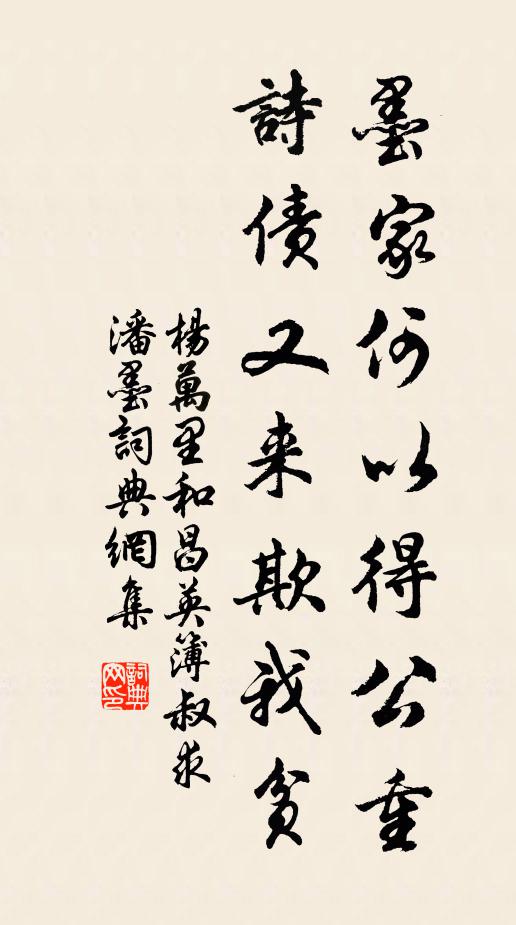 墨家何以得公重
詩債又来欺我貧
楊萬里和昌英簿叔求
潘墨詞典網集
詞典網印